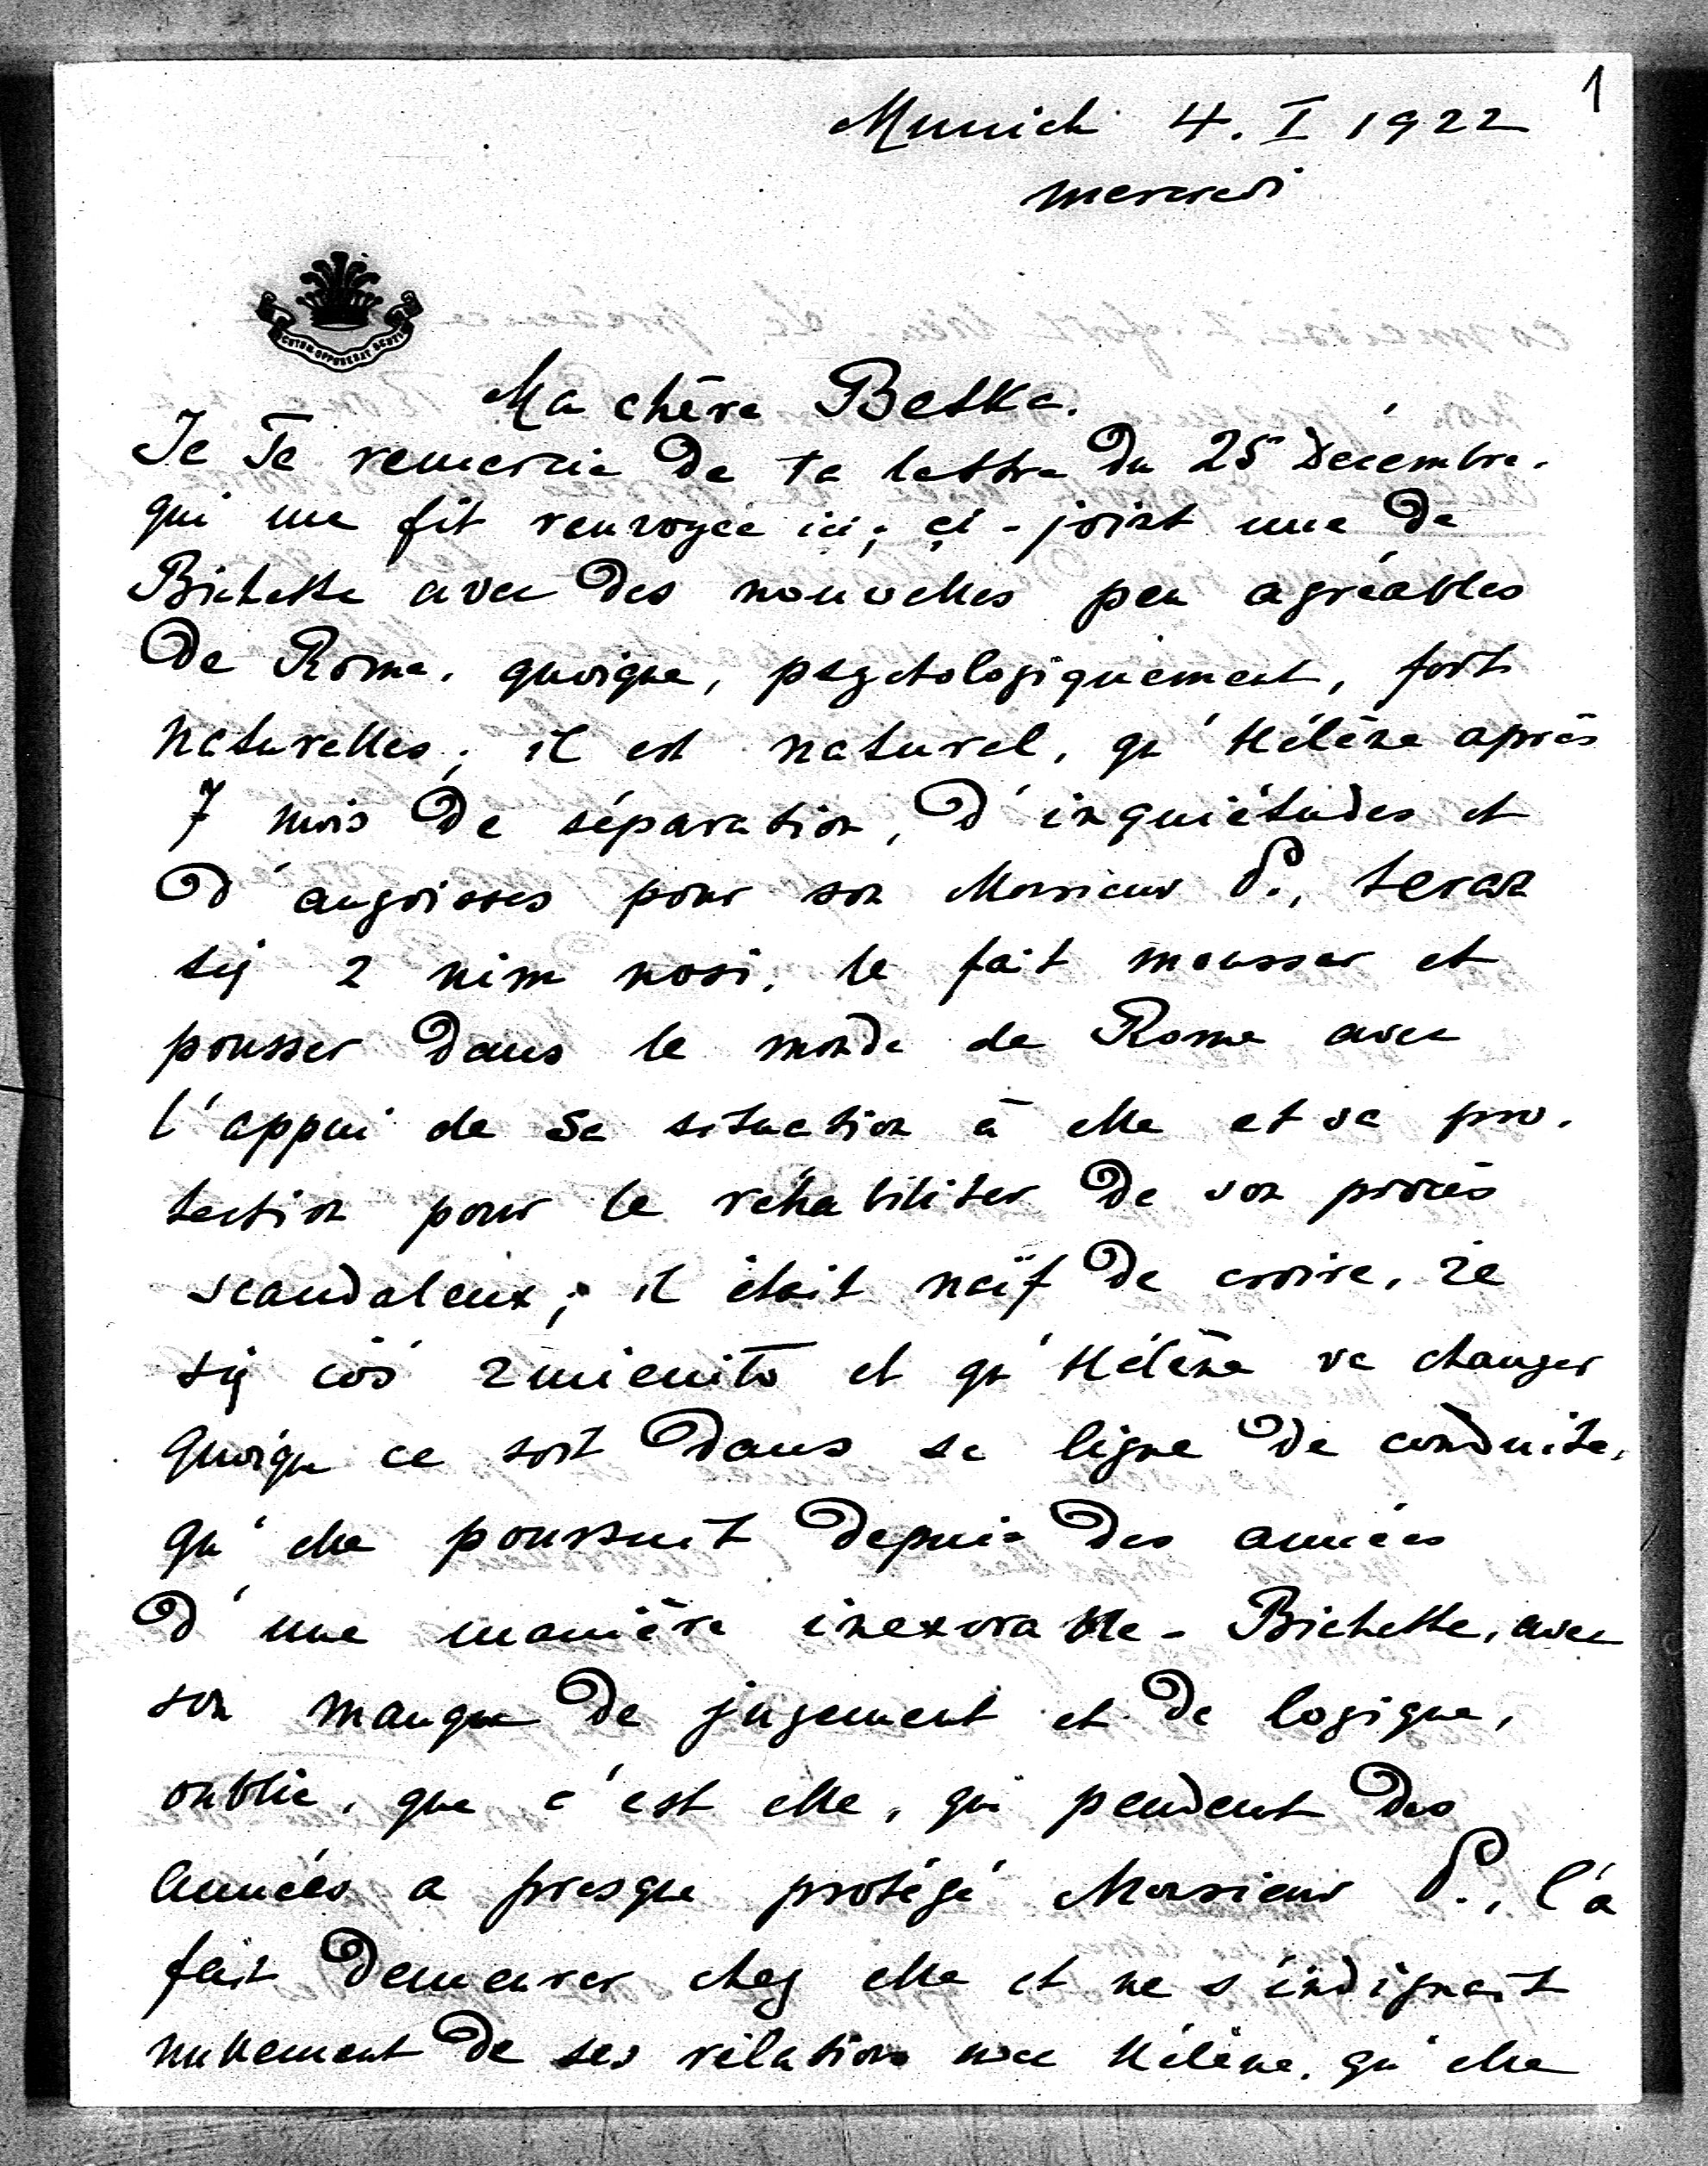 1
Munich 4. I 1922
mercredi
Ma chère Betka.
Je Te remercie de ta lettre du 25 Décembre.
qui me fit renvoyée ici; çi-joint une de
Bichette avec des nouvelles peu agréables
de Rome. quoique, psychologiquement, fort
naturelles; il est naturel, qu'Hélène après
7 mois de séparation, d'inquiétudes et
d'angoisses pour son Monsieur P., teraz
się z nim nosi, le fait mousser et
pousser dans le monde de Rome avec
l'appui de sa situation à elle et sa pro-
tection pour le réhabiliter de son procès
scandaleux; il était naïf de croire, że
się coś zmieniło et qu'Hélène va changer
quoique ce soit dans sa ligne de conduite,
qu'elle poursuit depuis des années
d'une manière inexorable - Bichette, avec
son manque de jugement et de logique,
oublie, que c'est elle, qui pendant des
années a presque protégé Monsieur P., l'a
fait demeurer chez elle et ne s'indignait
nullement de ses rélations avec Hélène, qu'elle